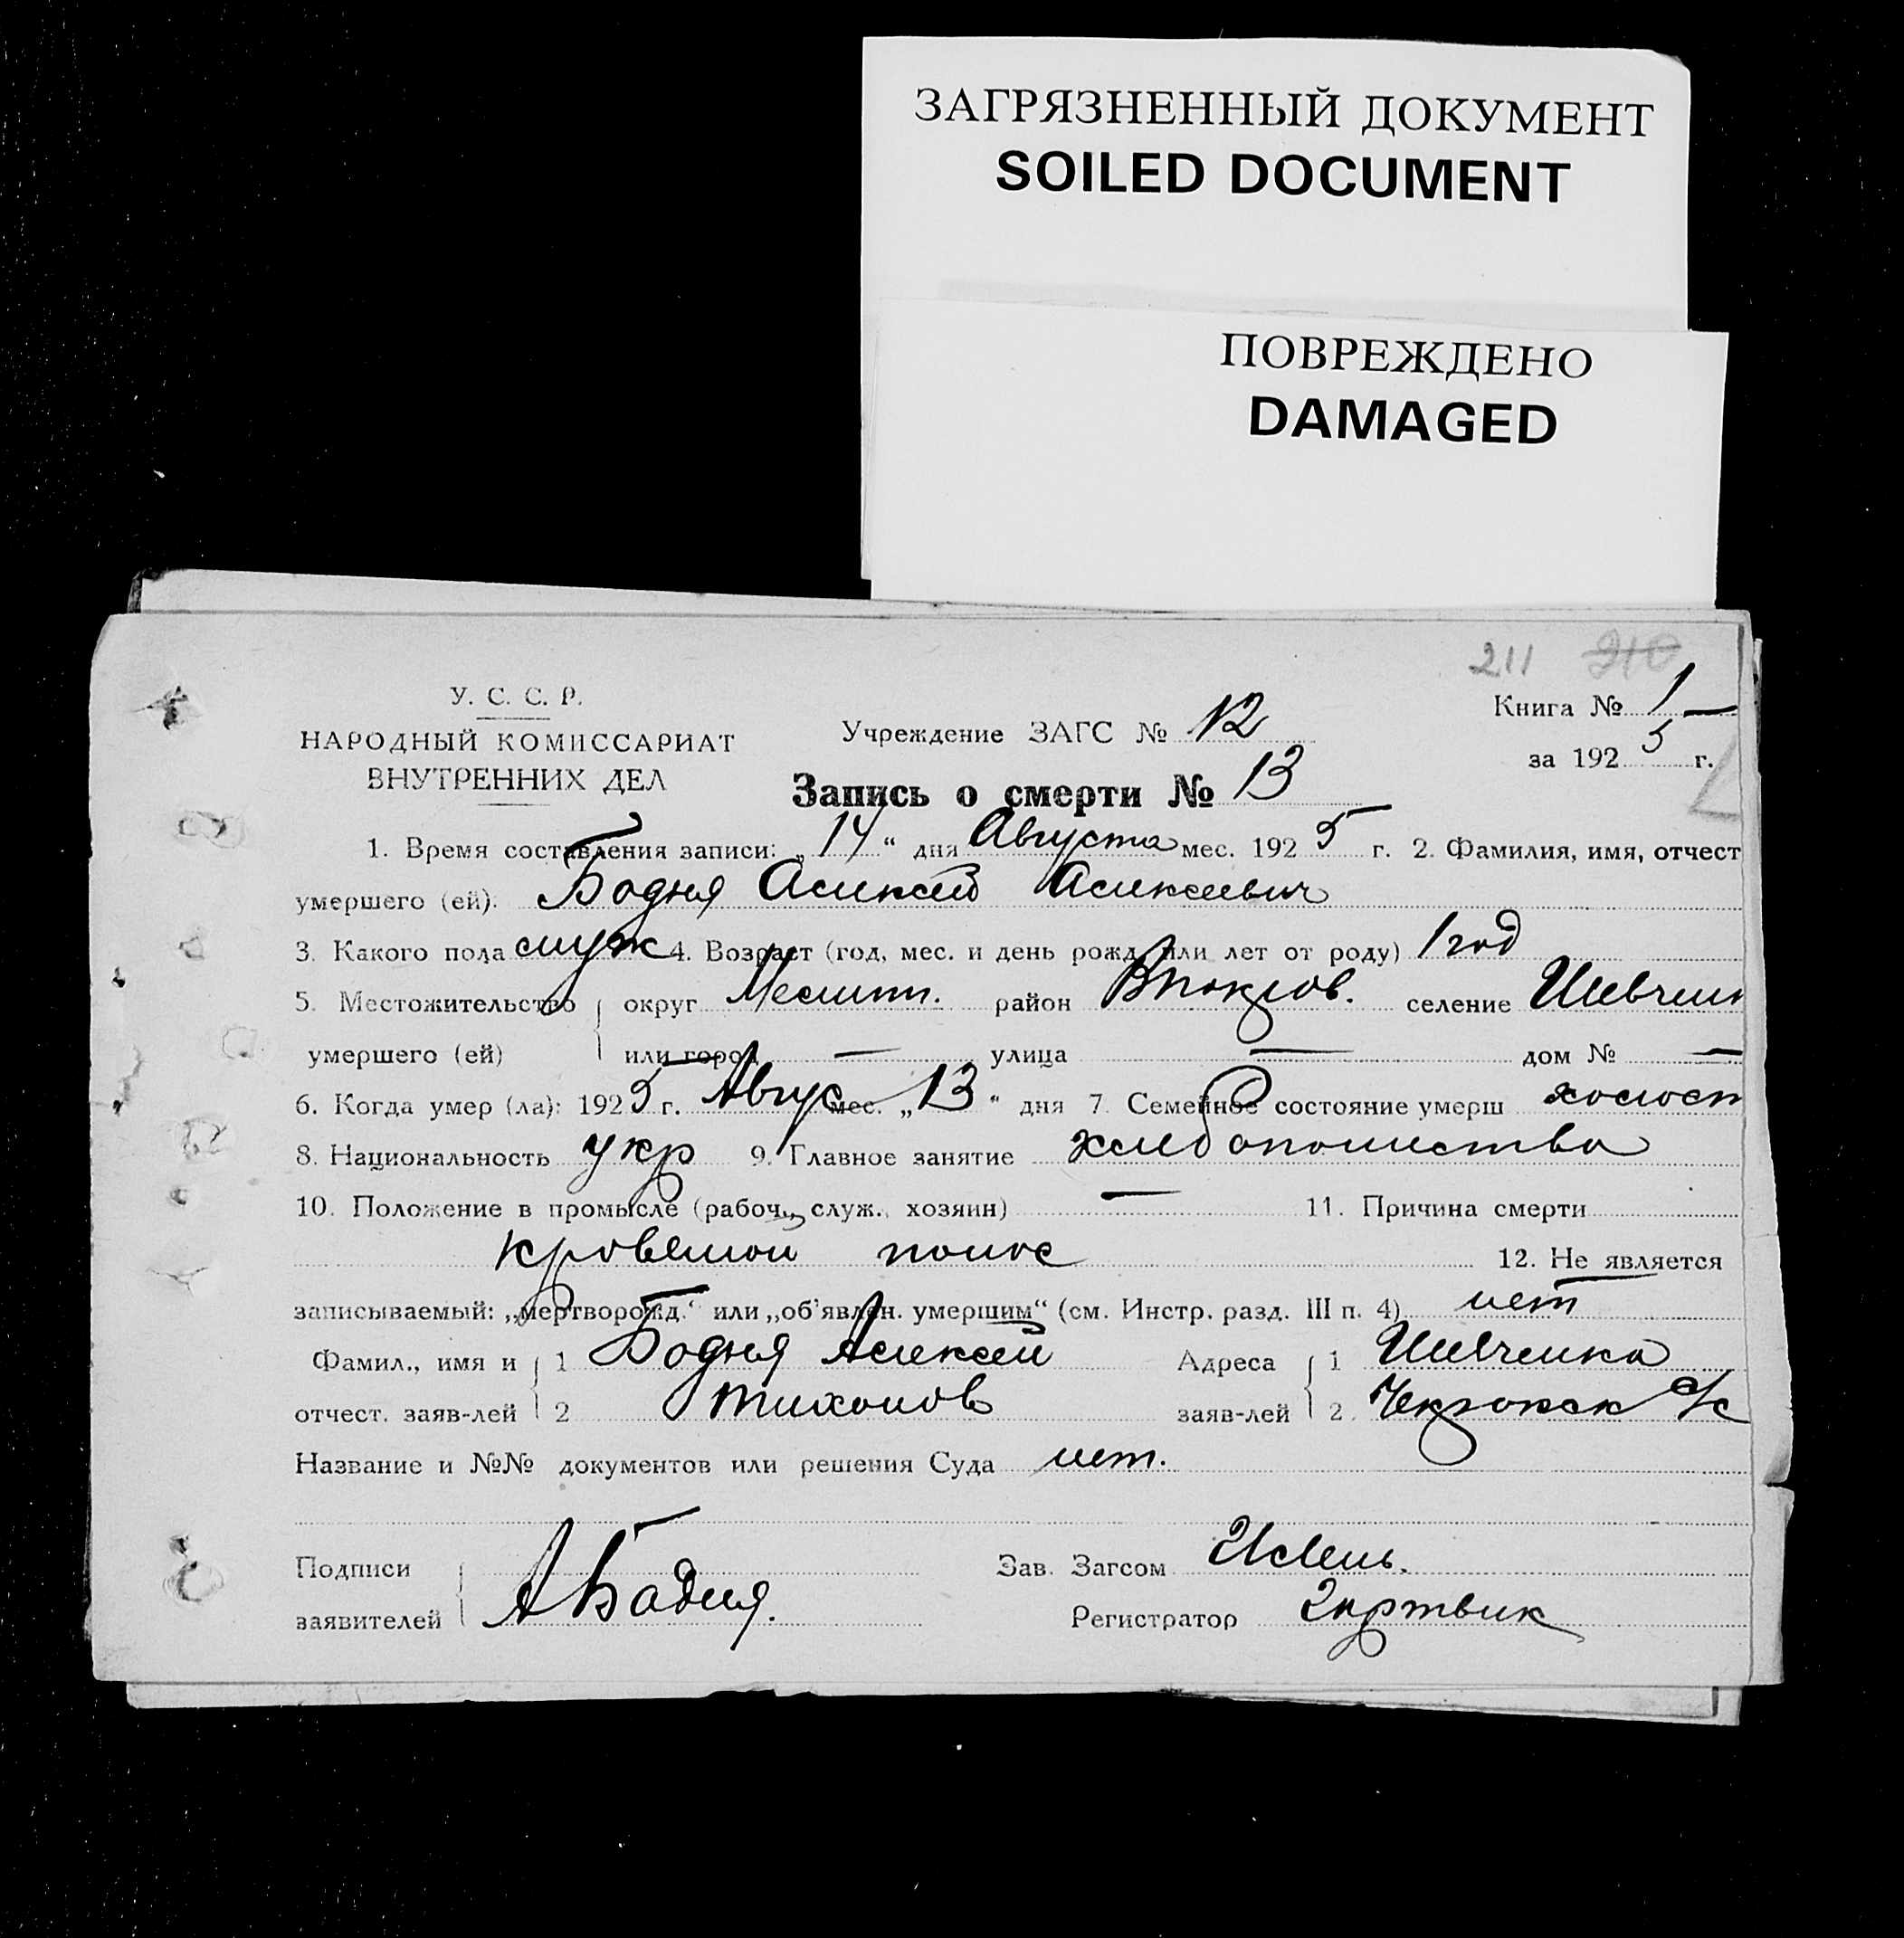 ЗАГРЯЗНЕННЫЙ ДОКУМЕНТ
SOILED DOCUMENT
ПОВРЕЖДЕНО
DAMAGED
211 210
У. С. С. Р.
НАРОДНЫЙ КОМИССАРИАТ
ВНУТРЕННИХ ДЕЛ
Учреждение ЗАГС № 12
Книга № 1
за 1925 г.
Запись о смерти № 13
1. Время составления записи: „14“ дня Августа мес. 1925 г. 2. Фамилия, имя, отчест
умершего (ей). Бодня Алексей Алексеевич
3. Какого пола муж 4. Возраст (год, мес. и день рожд. или лет от роду) 1 год
5. Местожительство округ Мелитп. район селение Шевченк
умершего (ей) или город — улица — дом № —
6. Когда умер (ла): 1925 г. Авгус мес. „13“ дня 7. Семейное состояние умерш холост
8. Национальность укр 9. Главное занятие хлебопашество
10. Положение в промысле (рабоч., служ., хозяин) — 11. Причина смерти
кровяной понос 12. Не является
записываемый: „мертворожд.“ или „об'явлен. умершим“ (см. Инстр. разд. III п. 4) нет
Фамил., имя и 1 Бодня Алексей Адреса 1 Шевченка
отчест. заяв-лей 2 Тихонов заяв-лей 2. с/с
Название и №№ документов или решения Суда нет.
Подписи Зав. Загсом
заявителей А Бодня. Регистратор